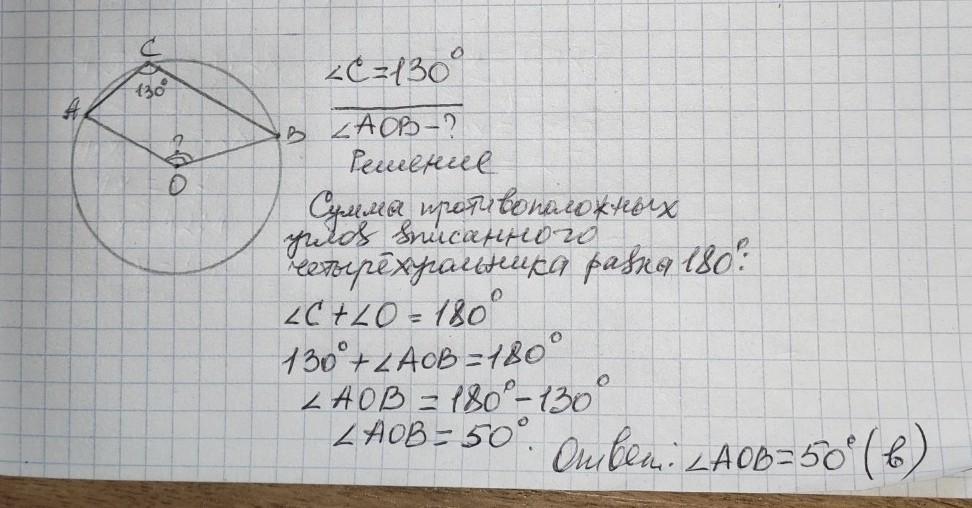 C
130°
A
B
?
O
∠C=130°
∠AOB-?
Решение
Сумма противоположных
углов вписанного
четырёхугольника равна 180°:
∠C+∠O=180°
130°+∠AOB=180°
∠AOB=180°-130°
∠AOB=50°.
Ответ: ∠AOB=50° (в)